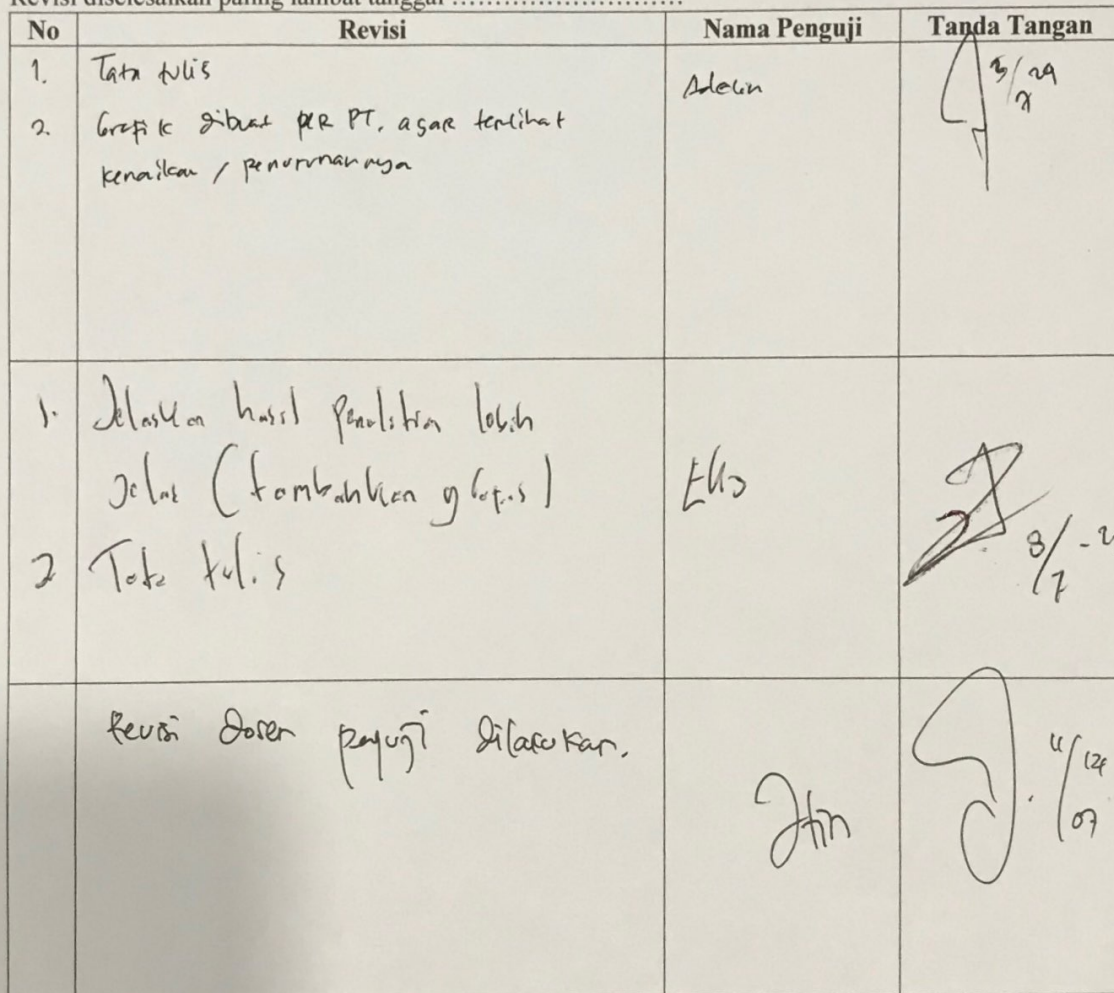 Revisi diselesaikan paling lambat tanggal ..............................
No Revisi Nama Penguji Tanda Tangan
1. Tata tulis Adelin 3/24
2. Grafik dibuat per PT, agar terlihat
kenaikan / penurunannya
1. Jelaskan hasil penelitian lebih
jelas (tambahkan ) Eko
2 Tata tulis 8/7
Revisi dosen penguji dilakukan.
11/07